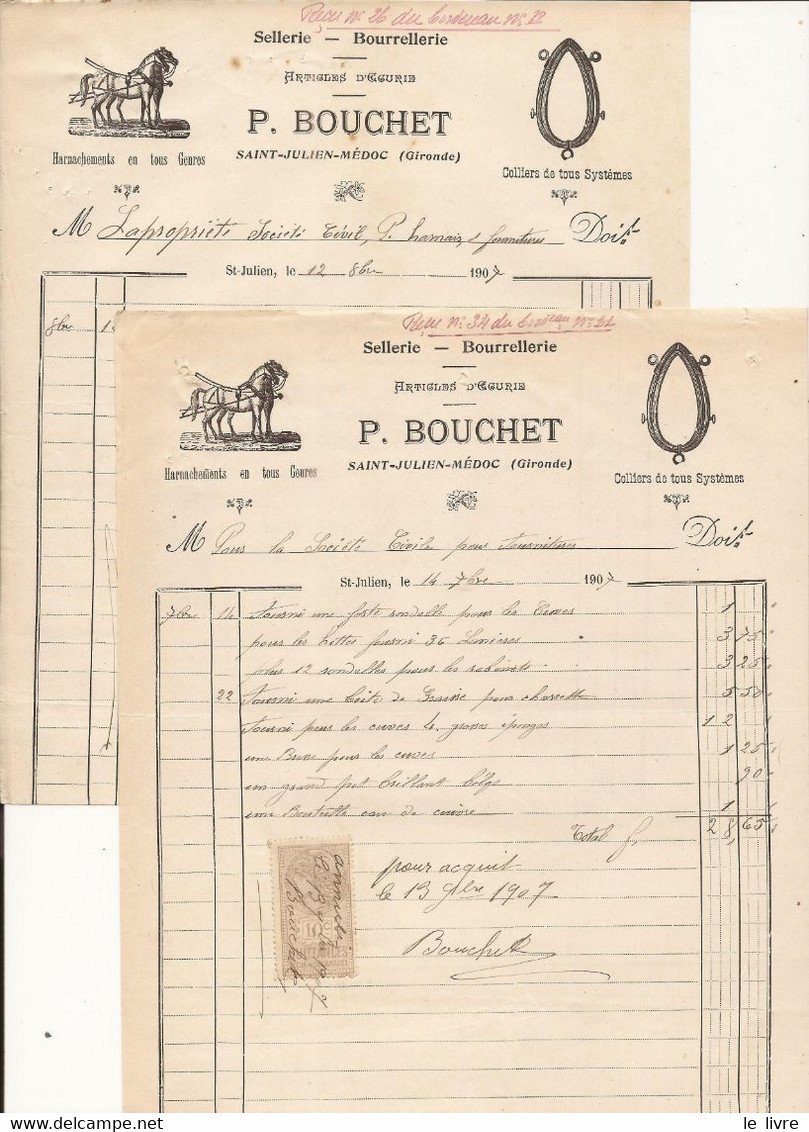 Reçu n° 26 du bordereau n° 22
Sellerie — Bourrellerie
ARTICLES D'ÉCURIE
P. BOUCHET
SAINT-JULIEN-MÉDOC (Gironde)
Harnachements en tous Genres
Colliers de tous Systèmes
M Lapropriété Société Civil, P. harnais & fournitures Doit
St-Julien, le 12 8bre 1907
8bre 12
Reçu n° 34 du bordereau n° 21
Sellerie — Bourrellerie
ARTICLES D'ÉCURIE
P. BOUCHET
SAINT-JULIEN-MÉDOC (Gironde)
Harnachements en tous Genres
Colliers de tous Systèmes
M Pour la Société Civile pour fournitures Doit
St-Julien, le 14 7bre 1907
7bre 14 Fourni une forte rondelle pour les Cuves 1
pour les hottes fourni 36 Lanières 3 75
plus 12 rondelles pour les robinets 3 25
22 Fourni une boîte de Graisse pour charrette 5 50
Fourni pour les cuves 4 grosses éponges 12
une Brosse pour les cuves 1 25
un grand pot brillant belge 90
une Bouteille eau de cuivre 1
Total f 28,65
pour acquit
le 13 9bre 1907
Bouchet
10c
Bouchet
le livre